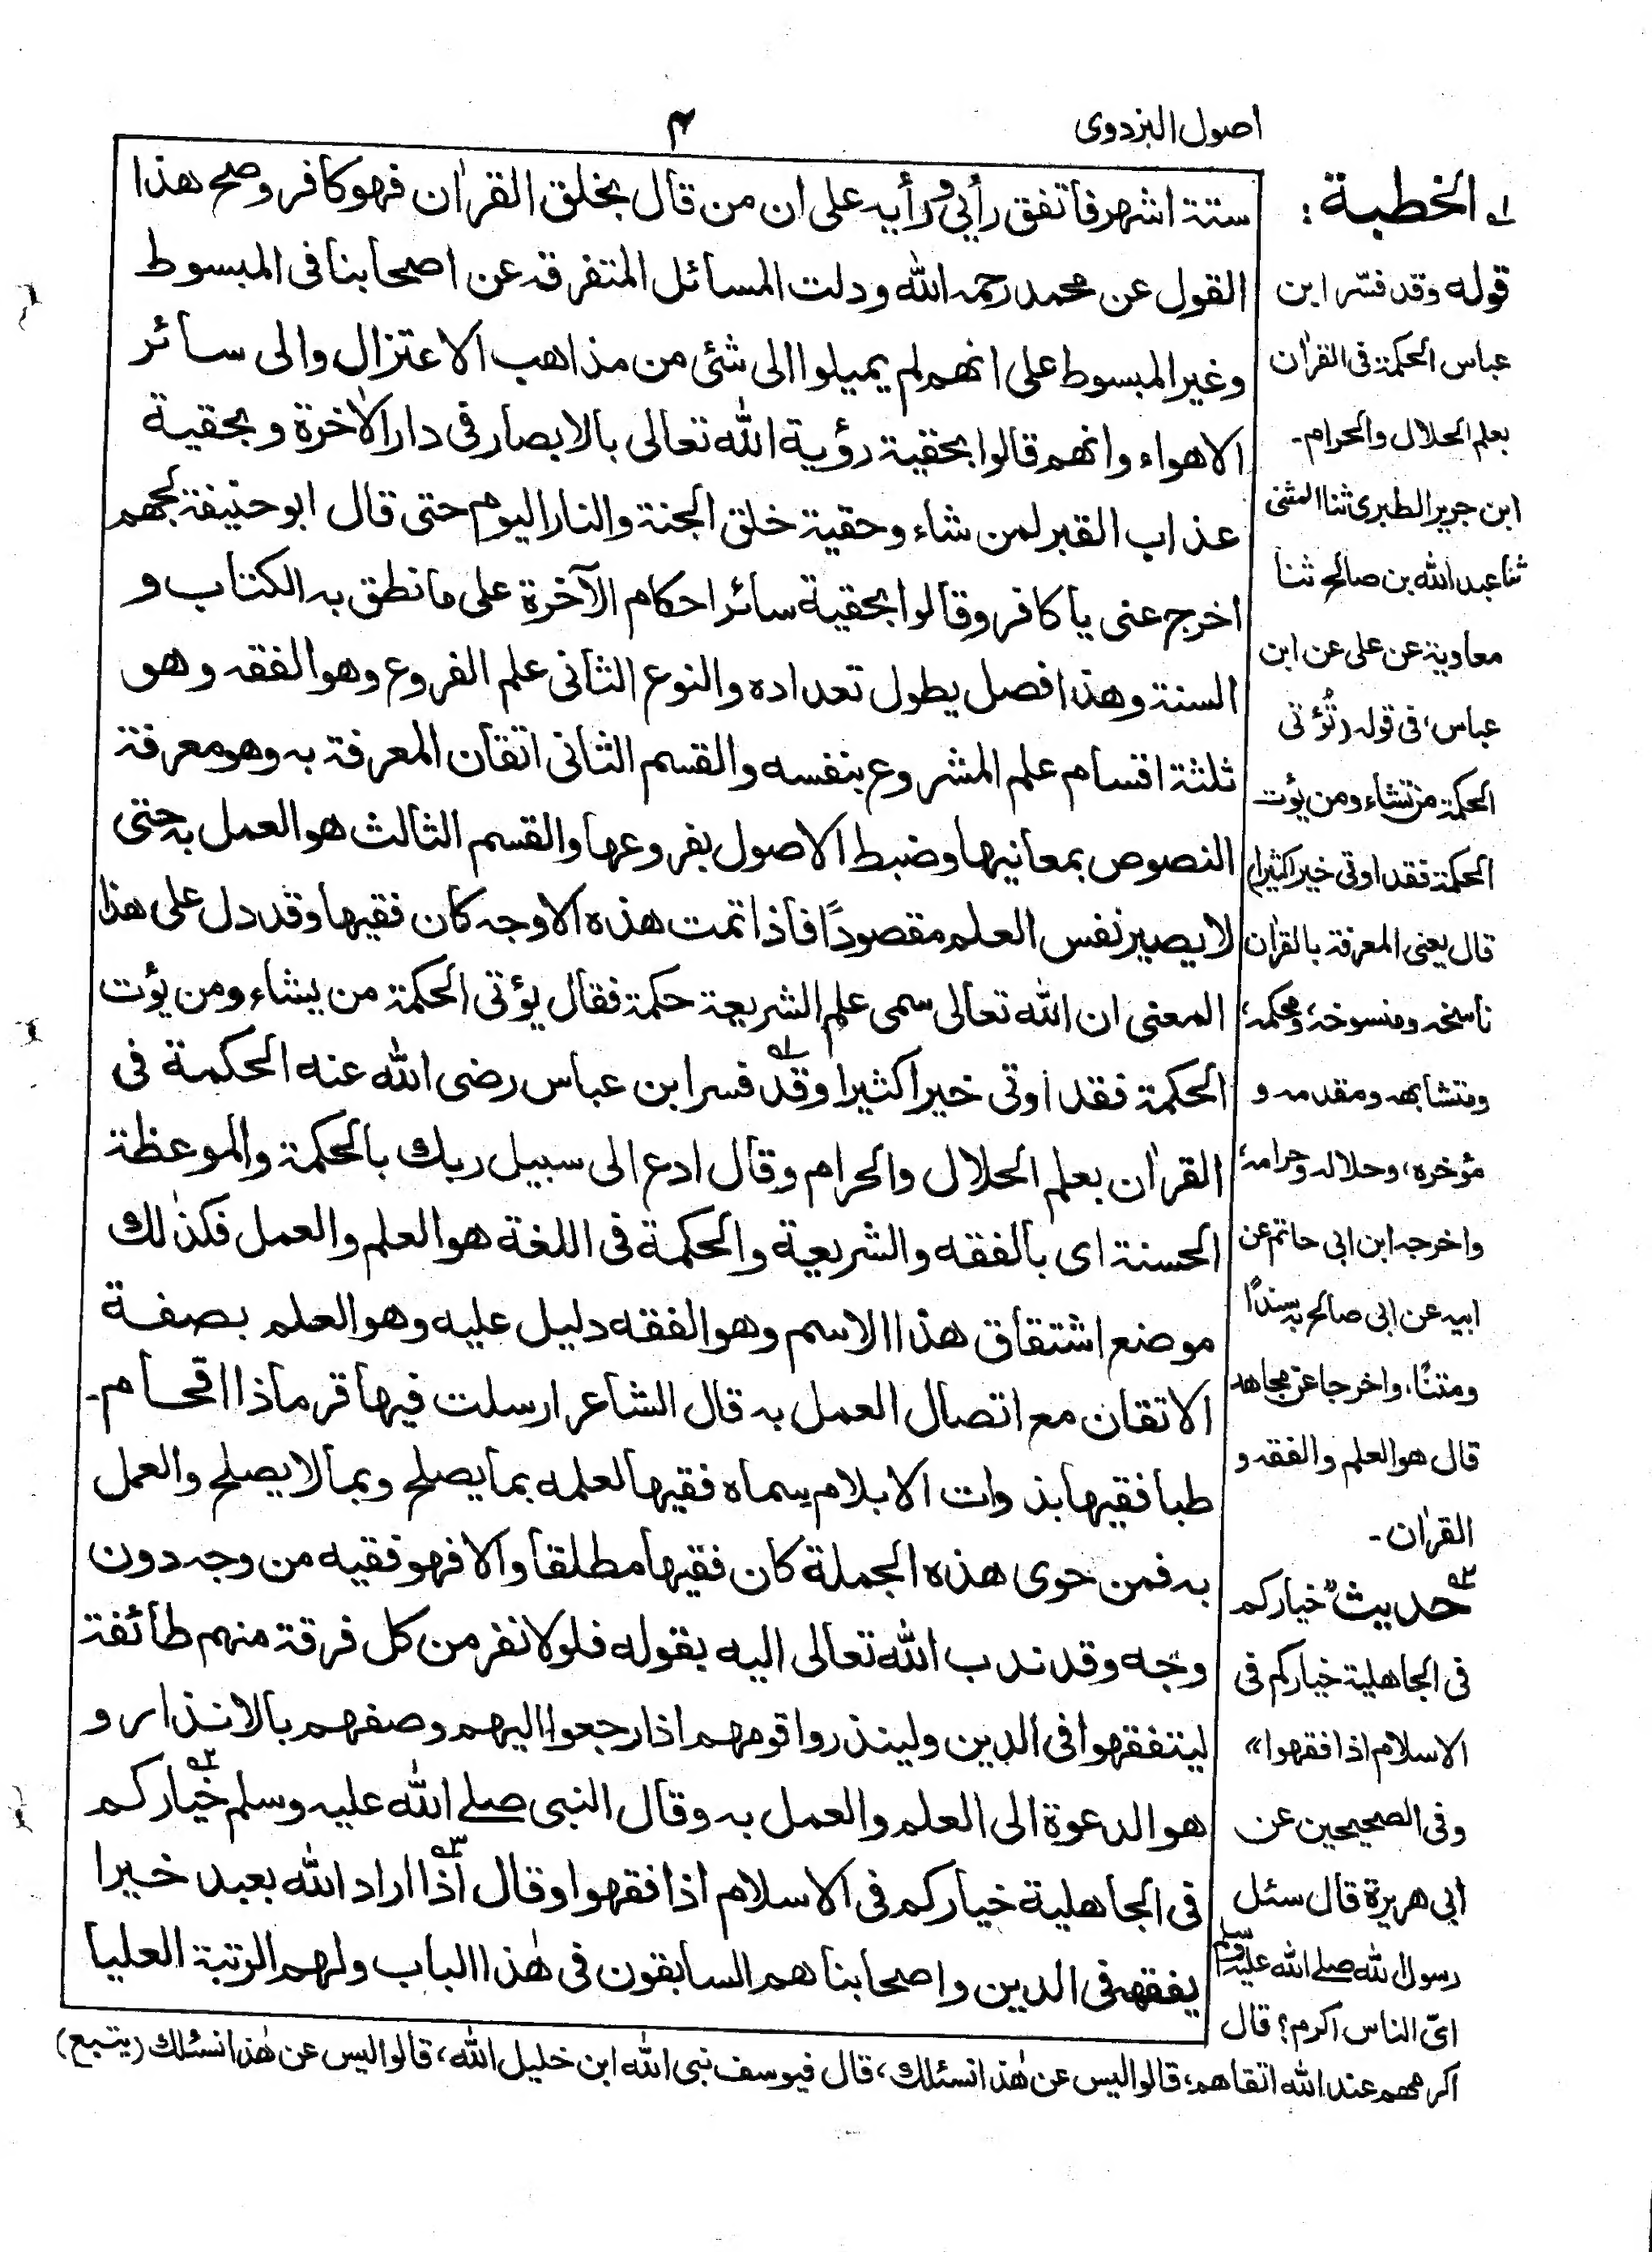 اصول البزدوى
٤
ستة اشهر فاتفق رأيي ورأيه على ان من قال بخلق القرأن فهو كافر وصح هذا
القول عن محمد رحمه الله ودلت المسائل المتفرقة عن اصحابنا فى المبسوط
وغير المبسوط على انهم لم يميلوا الى شئى من مذاهب الاعتزال والى سائر
الاهواء وانهم قالوا بحقية رؤية الله تعالى بالابصار فى دار الأخرة وبحقية
عذاب القبر لمن شاء وحقية خلق الجنة والنار اليوم حتى قال ابو حنيفة لجهم
اخرج عنى يا كافر وقالوا بحقية سائر احكام الآخرة على ما نطق به الكتاب و
السنة وهذا فصل يطول تعداده والنوع الثانى علم الفروع وهو الفقه وهو
ثلثة اقسام علم المشروع بنفسه والقسم الثانى اتقان المعرفة به وهو معرفة
النصوص بمعانيها وضبط الاصول بفروعها والقسم الثالث هو العمل به حتى
لا يصير نفس العلم مقصودًا فاذا تمت هذه الاوجه كان فقيها وقد دل على هذا
المعنى ان الله تعالى سمى علم الشريعة حكمة فقال يؤتى الحكمة من يشاء ومن يؤت
الحكمة فقد أوتى خيرا كثيرا وقد١ فسر ابن عباس رضى الله عنه الحكمة فى
القرأن بعلم الحلال والحرام وقال ادع الى سبيل ربك بالحكمة والموعظة
الحسنة اى بالفقه والشريعة والحكمة فى اللغة هو العلم والعمل فكذٰلك
موضع اشتقاق هذا الاسم وهو الفقه دليل عليه وهو العلم بصفة
الاتقان مع اتصال العمل به قال الشاعر ارسلت فيها قرما ذا اقحام۔
طبا فقيها بذوات الابلام سماه فقيها لعلمه بما يصلح وبما لا يصلح والعمل
به فمن حوى هذه الجملة كان فقيها مطلقا والا فهو فقيه من وجه دون
وجه وقد ندب الله تعالى اليه بقوله فلولا نفر من كل فرقة منهم طائفة
ليتفقهوا فى الدين ولينذروا قومهم اذا رجعوا اليهم وصفهم بالانذار و
هو الدعوة الى العلم والعمل به وقال النبى صلے الله عليه وسلم خياركم٢
فى الجاهلية خياركم فى الاسلام اذا فقهوا وقال اذا٣ اراد الله بعبد خيرا
يفقهه فى الدين واصحابنا هم السابقون فى هٰذا الباب ولهم الرتبة العليا
١ الخطبة :
قوله وقد فسّر ابن
عباس الحكمة فى القرأن
بعلم الحلال والحرام۔
ابن جرير الطبرى ثنا المثنى
ثنا عبد الله بن صالح ثنا
معاوية عن على عن ابن
عباس، فى قوله (تُؤتى
الحكمة من تشاء ومن يؤت
الحكمة فقد اوتى خيرا كثيرا)
قال يعنى المعرفة بالقرأن
ناسخه ومنسوخه، ومحكمه،
ومتشابهه ومقدمه و
مؤخره، وحلاله وحرامه،
واخرجه ابن ابى حاتم عن
ابيه عن ابى صالح به سندًا
ومتنًا، واخرجا عن مجاهد
قال هو العلم والفقه و
القرأن۔
٢ حديث "خياركم
فى الجاهلية خياركم فى
الاسلام اذا فقهوا"
وفى الصحيحين عن
ابى هريرة قال سئل
رسول الله صلے الله عليه وسلم
اىّ الناس اكرم؟ قال
اكرمهم عند الله اتقاهم، قالوا ليس عن هٰذا نسئلك، قال فيوسف نبى الله ابن خليل الله، قالوا ليس عن هٰذا نسئلك (يتبع)